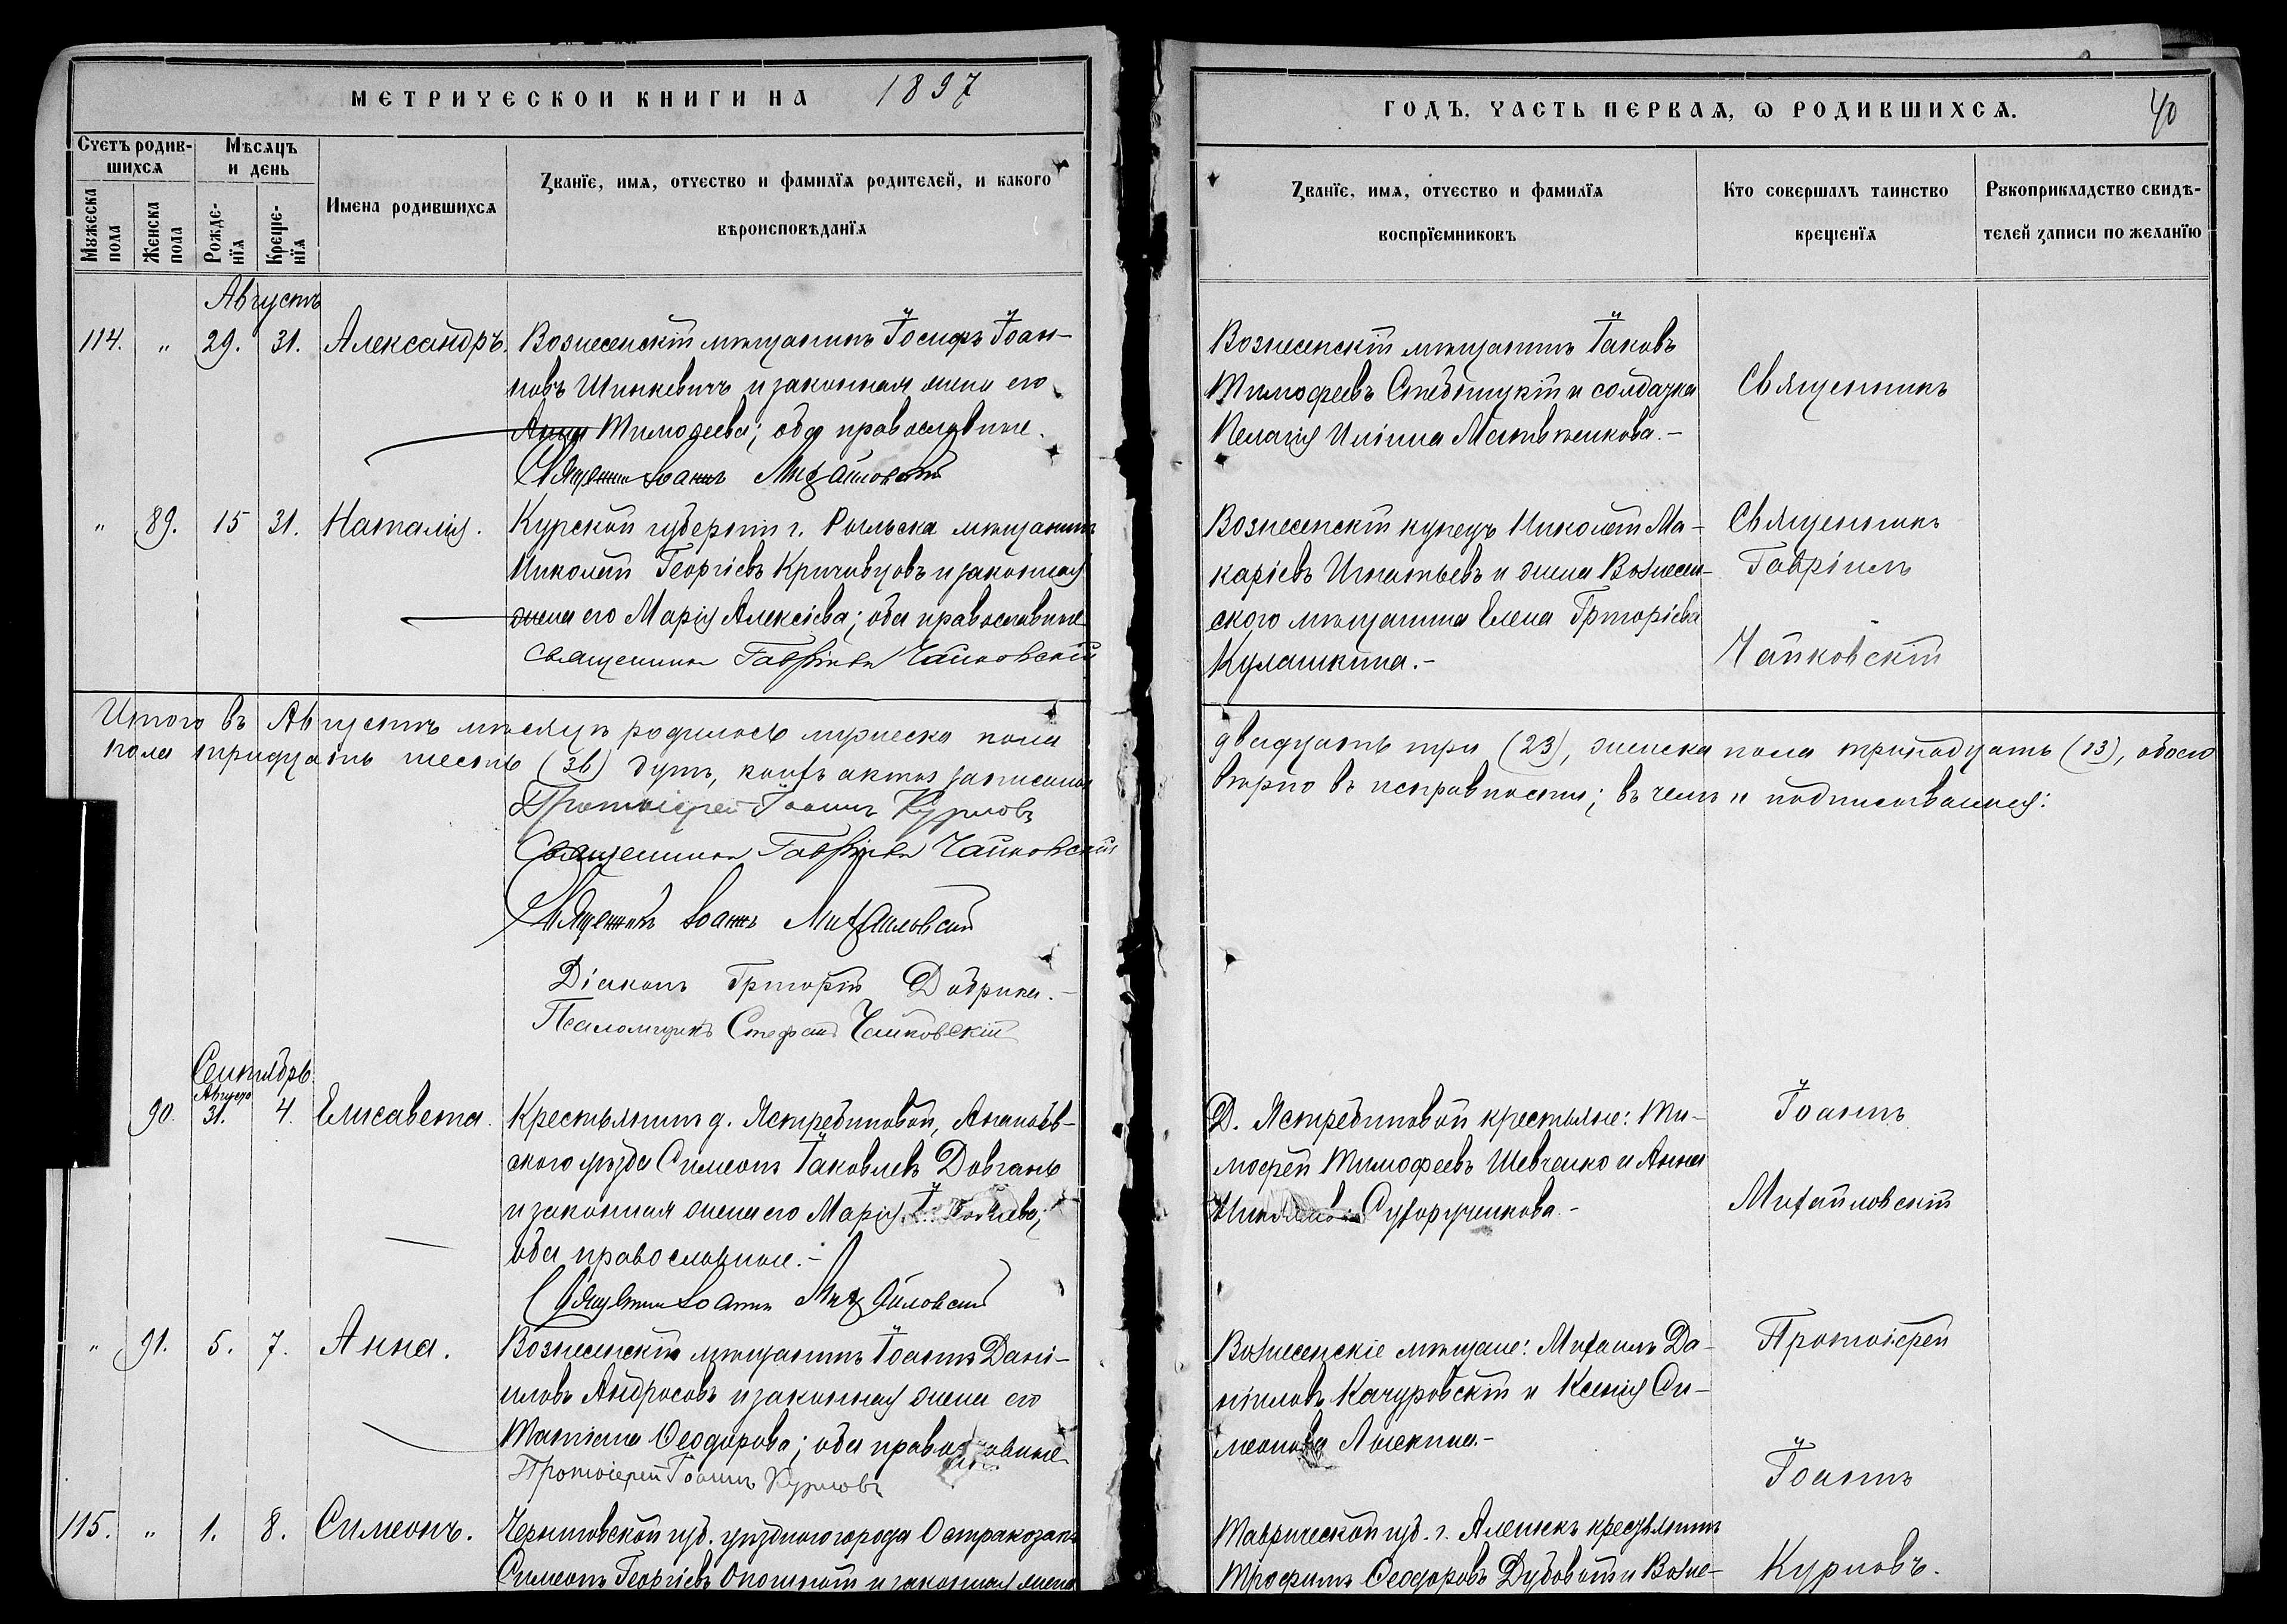 МЕТРИЧЕСКОЙ КНИГИ НА 1897
Счетъ родив-
шихся
Мѣсяцъ
и день
Мужеска
пола
Женска
пола
Рожде-
нїя
Креще-
нїя
Имена родившихся
Званїе, имя, отчество и фамилїя родителей, и какого
вѣроисповѣданїя
Августъ
114. „ 29. 31. Александръ. Вознесенскій мѣщанинъ Іосифъ Іоан-
новъ Шинкевичъ и законная жена его
Анна Тимоѳеева; оба православные.
Священникъ Іоаннъ Михайловскій
„ 89. 15 31. Наталія. Курской губерніи г. Рыльска мѣщанинъ
Николай Георгіевъ Кричевцовъ и законная
жена его Марія Алексіева; оба православные
Священникъ Гавріилъ Чайковскій
Итого въ Августѣ мѣсяцѣ родилось мужеска пола
пола тридцать шесть (36) душъ, коихъ актъ записанъ
Протоіерей Іоаннъ Курловъ
Священникъ Гавріилъ Чайковскій
Священникъ Іоаннъ Михайловскій
Діаконъ Григорій
Псаломщикъ Стефанъ Чайковскій
Сентябрь.
Августа
90. 31. 4. Елисавета. Крестьянинъ д. Ястребиновой, Ананьев-
скаго уѣзда Симеонъ Іаковлевъ Довгань
и законная жена его Марія
оба православные.-
Священникъ Іоаннъ Михайловскій
„ 91. 5. 7. Анна. Вознесенскій мѣщанинъ Іоаннъ Дані-
иловъ Андросовъ и законная жена его
Татіана Ѳеодорова; оба православные
Протоіерей Іоаннъ Курловъ
115. „ 1. 8. Симеонъ. Черниговской губ. уѣзднаго города Остра козакъ
Симеонъ Георгіевъ и законная жена
ГОДЪ, ЧАСТЬ ПЕРВАЯ, Ѡ РОДИВШИХСЯ. 40
Званїе, имя, отчество и фамилїя
воспрїемниковъ
Кто совершалъ таинство
крещенїя
Рукоприкладство свидѣ-
телей записи по желанїю
Вознесенскій мѣщанинъ Іаковъ
Тимофеевъ и солдатка Священникъ
Пелагія Ильина Матвѣенкова.-
Вознесенскій купецъ Николай Ма- Священникъ
каріевъ Игнатьевъ и жена Вознесен- Гавріилъ
скаго мѣщанина Елена Григоріева
Кулашкина.- Чайковскій
двадцать три (23), женска пола тринадцать (13), обоего
вѣрно въ исправности; въ чемъ и подписываемся:
Д. Ястребиновой крестьяне: Ти- Іоаннъ
мофей Тимофеевъ Шевченко и Анна
Сухоручникова.- Михайловскій
Вознесенскіе мѣщане: Михаилъ Да- Протоіерей
ніиловъ Качуровскій и Ксенія Си-
меонова Алекина.-
Іоаннъ
Таврической губ. г. Алешекъ крестьянинъ
Трофимъ Ѳеодоровъ Дубовый и Возне- Курловъ.